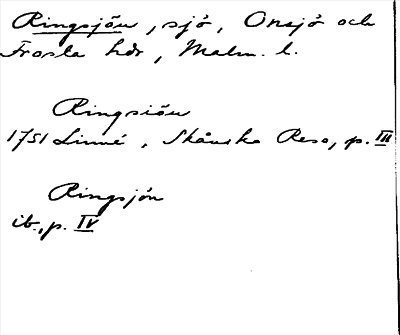 Ringsjön, sjö, Onsjö och
Frosta hdr, Malm. l.
Ringsiön
1751 Linné, Skånska Resa, p. III
Ringsjön
ib., p. IV